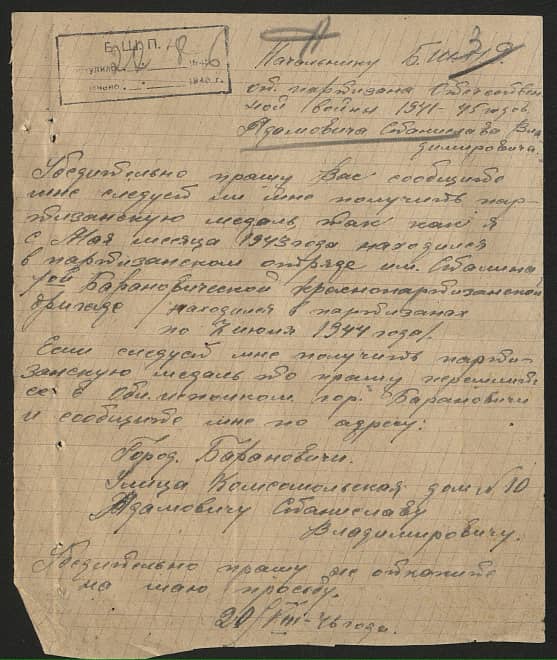 Б.Ш.П.
1946
1946 г.
Начальнику Б.Ш.П.Д
от партизана Отечествен
ной войны 1941-45 годов
Адамовича Станислава Вла
димировича.
Убедительно прашу Вас сообщите
мне следует ли мне получить пар-
тизанскую медаль, так как я
с Мая месяца 1943 года находился
в партизанском отряде им. Сталина
Барановической краснопартизанской
бригаде / находился в партизанах
по 7 июля 1944 года/.
Если следует мне получить парти-
занскую медаль то прашу перешлите
ее в Обл. гор. Барановичи
и сообщите мне по адресу:
Город. Барановичи.
Улица Комсомольская дом № 10
Адамовичу Станиславу
Владимировичу.
Убедительно прашу не откажите
на маю просьбу.
20/VIII-46 года.